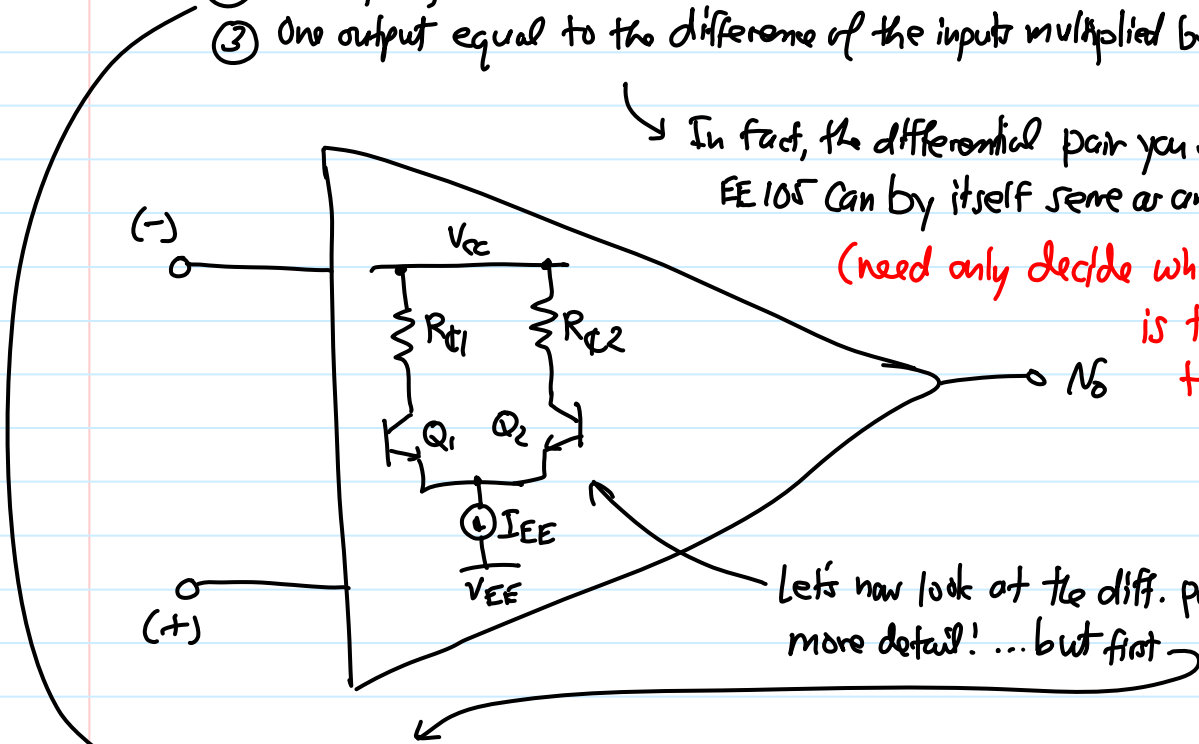 ③ One output equal to the difference of the inputs multiplied b
In fact, the differential pair you
EE 105 can by itself serve as an
(-)
Vcc
(need only decide wh
RC1
RC2
is t
No
t
Q1
Q2
IEE
VEE
Let's now look at the diff. p
(+)
more detail! ... but first